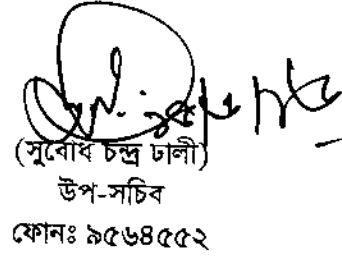 (সুবোধ চন্দ্র ঢালী)
উপ-সচিব
ফোনঃ ৯৫৬৪৫৫২